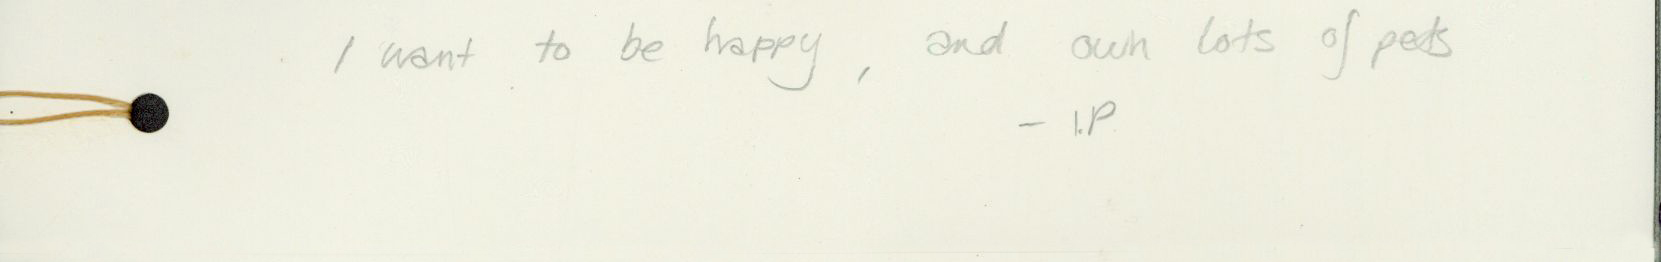 I want to be happy, and own lots of pets
- I.P.